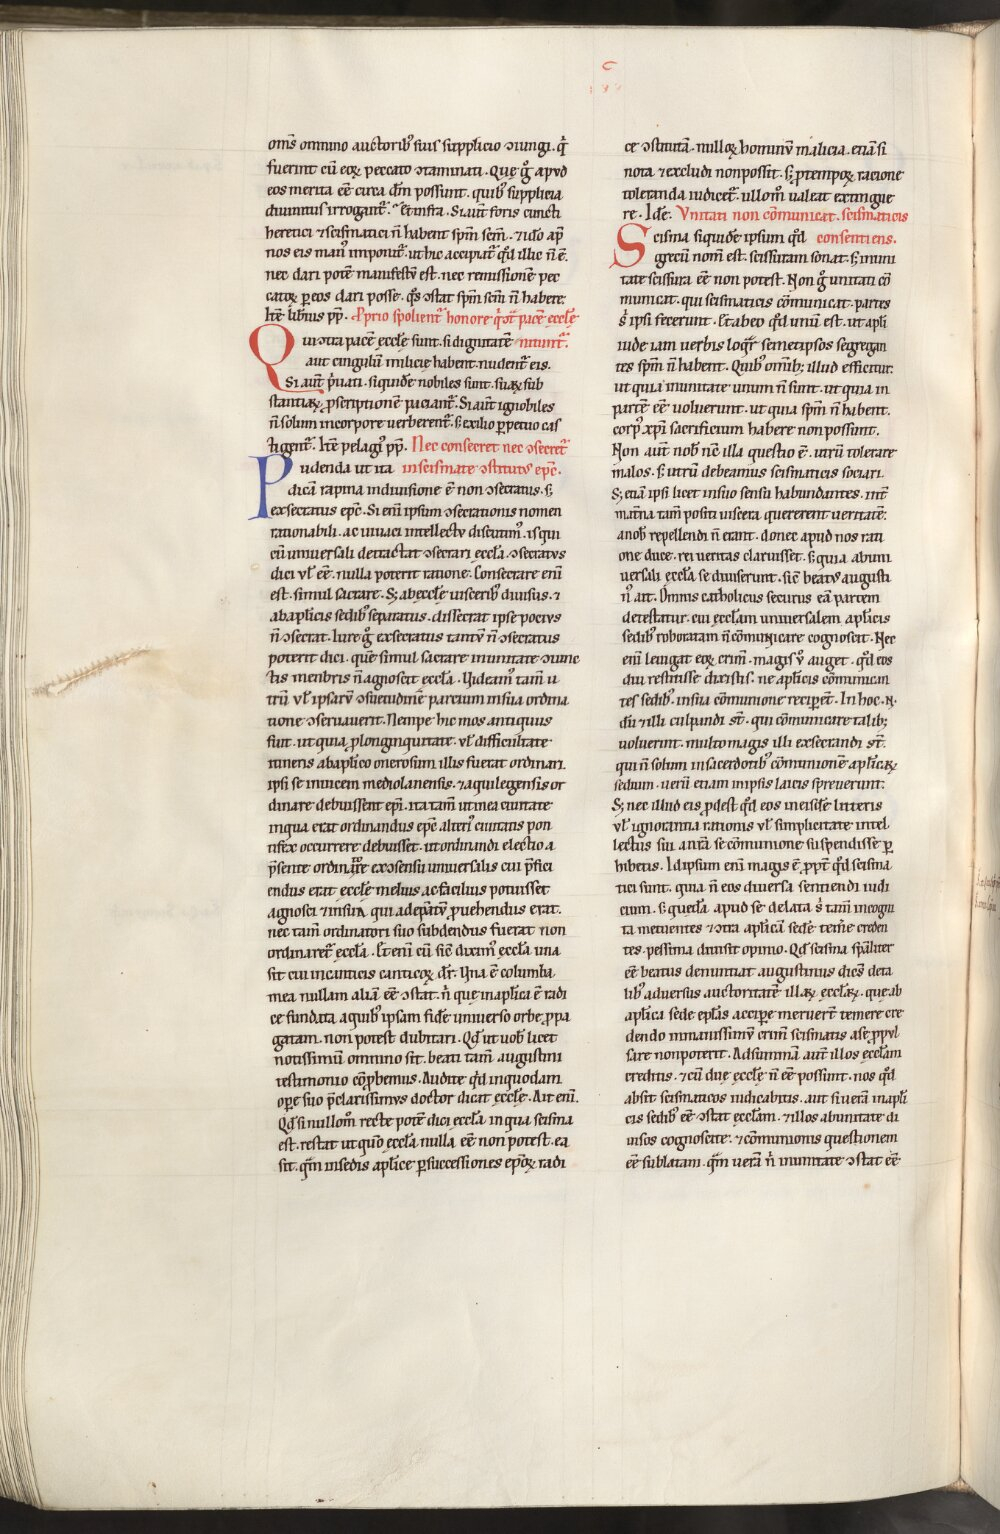 C
om̄s omnino auctorib᷒ suis supplicio ɔiungi. q̄
fuerint cū eoꝝ peccato ɔtaminati. Quę gͦ apud
eos merita eē circa dm̄ possunt. quib᷒ supplicia
diuinitus irrogant᷑. Et infra. Si aut̄ foris cuncti
heretici ⁊ scismatici n̄ habent spm̄ sc̄m. ⁊ ido ap̄
nos eis man᷒ imponit᷑. ut hic accipiat᷑ qd̄ illic n̄ ē.
nec dari potē manifestū est. nec remissionē pec
catoꝝ ꝑ eos dari posse. q̄s ɔstat spm̄ sc̄m n̄ habere.
Itē liberius pp. Ꝓprio spolient᷑ honore q̄ ɔt᷑ pacē eccl̄ę
Qui ɔtra pacē eccl̄ę sunt. si dignitatē nitunt᷑.
aut cingulū milicię habent. nudent᷑ eis.
Si aut̄ p̄uati. siquidē nobiles sunt. suaꝝ sub
stantiaꝝ ꝓscriptionē paciant᷑. Si aut̄ ignobiles
n̄ solum in corpore uerberent᷑. s; exilio ꝑpetuo cas
tigent᷑. Itē pelagi᷒ pp. Nec consecret nec ɔsecret᷑
Pudenda ut ita in scismate ɔstitut᷒ ep̄c.
dicā rapina in diuisione ē non ɔsecratus. s;
exsecratus ep̄c. Si enī ipsum ɔsecrationis nomen
rationabili. ac uiuaci intellectu discutim᷒. is qui
cū uniuersali detractat ɔsecrari eccl̄a. ɔsecratus
dici ul̄ eē. nulla poterit ratione. Consecrare enī
est. simul sacrare. S; ab eccl̄ę uisceribus diuisus. ⁊
ab apl̄icis sedib᷒ separatus. dissecrat ipse pocius
n̄ ɔsecrat. Iure gͦ exsecratus tantū n̄ ɔsecratus
poterit dici. quē simul sacrare in unitate ɔiunc
tis menbris n̄ agnoscit eccl̄a. Uideam᷒ tam̄ u
trū ul̄ ipsarū ɔsuetudinē parcium in sua ordina
tione ɔseruauerit. Nempe hic mos antiquus
fuit. ut quia ꝓ longinquitate. ul̄ difficultate
itineris ab apl̄ico onerosum illis fuerat ordinari.
ipsi se inuicem mediolanensis. ⁊ aquilegensis or
dinare debuissent ep̄i. ita tam̄ ut in ea ciuitate
in qua erat ordinandus ep̄c alteri᷒ ciuitatis pon
tifex occurrere debuisset. ut ordinandi electio a
p̄sente ordinatore ex ɔsensu uniuersalis cui p̄fici
endus erat eccl̄ę melius ac facilius potuisset
agnosci ⁊ infra qui adeptatū ꝓuehendus erat.
nec tam̄ ordinatori suo subdendus fuerat non
ordinaret᷑ eccl̄a. Et enī cū sic̄ dixim᷒ eccl̄a una
sit cui in canticis canticoꝝ dr̄. Una ē columba
mea nullam aliā eē ɔstat. n̄ quę in apl̄ica ē radi
ce fundata. a quib᷒ ipsam fidē uniuerso orbe ꝓpa
gatam. non potest dubitari. Qd̄ ut uob̄ licet
notissimū omnino sit. beati tam̄ augustini
testimonio cōprobemus. Audite qd̄ in quodam
opere suo p̄clarissimus doctor dicat eccl̄ę. Ait enī.
Qd̄ si nullom̄ recte potē dici eccl̄a in qua scisma
est. restat ut quō eccl̄a nulla eē non potest. ea
sit. qm̄ in sedis apl̄icę ꝑ successiones ep̄oꝝ radi
ce ɔstituta. nulloꝝ hominū malicia. etiā si
nota ⁊ excludi non possit. s; ꝓ tempoꝝ racione
toleranda iudicet᷑. ullom̄ ualeat extingue
re. Idē. Unitati non cōmunicat. scismaticis
Scisma siquidē ipsum qd̄ consentiens.
grecū nom̄ est. scissuram sonat. s; in uni
tate scissura eē non potest. Non gͦ unitati cō
municat. qui scismaticis cōmunicat. partes
s; ipsi fecerunt. Et ab eo qd̄ unū est. ut apl̄i
iude iam uerbis loqr̄ semetipsos segregan
tes spm̄ n̄ habent. Quib᷒ omib; illud efficitur.
ut quia in unitate unum n̄ sunt. ut quia in
partē eē uoluerunt. ut quia spm̄ n̄ habent.
corp᷒ xp̄i sacrificium habere non possunt.
Non aut̄ nob̄ nc̄ illa questio ē. utrū tolerare
malos. s; utrū debeamus scismaticis sociari.
S; etiā ipsi licet in suo sensu habundantes. int᷑
mat̄na tam̄ positi uiscera quererent ueritatē.
a nob̄ repellendi n̄ erant. donec apud nos rati
one duce. rei ueritas claruisset. s; quia ab uni
uersali eccl̄a se diuiserunt. sic̄ beatus augusti
n᷒ ait. Omnis catholicus securus eā partem
detestatur. cui eccl̄am uniuersalem apl̄icis
sedib᷒ roboratam n̄ cōmunicare cognoscit. Nec
enī leuigat eoꝝ crim̄. magis uͦ auget. qd̄ eos
diu restitisse dixistis. ne apl̄icis cōmunican
tes sedib᷒. in sua cōmunione reciperet. In hoc. n̄
dū ⁊ illi culpandi st̄. qui cōmunicare talib;
uoluerint. multo magis illi exsecrandi st̄.
qui n̄ solum in sacerdotib᷒ cōmunionē apl̄icaꝝ
sedium. uerū etiam in ipsis laicis spreuerunt.
S; nec illud eis ꝓdest qd̄ eos in eisdē litteris
ul̄ ignorantia rationis ul̄ simplicitate intel
lectus sui antea se cōmunione suspendisse ꝑ
hibetis. Id ipsum enī magis ē ꝓpt᷑ qd̄ scisma
tici sunt. quia n̄ eos diuersa sentiendi iudi
cium. s; quedā apud se delata s; tam̄ incogni
ta metuentes ⁊ ɔtra apl̄icā sedē temere creden
tes. pessima diuisit opinio. Qd̄ scisma spāliter
eē beatus denuntiat augustinus dicēs de ta
lib᷒ aduersus auctoritatē illaꝝ eccl̄aꝝ. quę ab
apl̄ica sede epl̄as accipe meruert̄ temere cre
dendo immanissimū crim̄ scismatis a se ꝓpul
sare non poterit. Ad summā aut̄ illos eccl̄am
creditis. ⁊ cū due eccl̄ę n̄ eē possunt. nos qd̄
absit scismaticos iudicabitis. aut si uerā in apl̄i
cis sedib᷒ eē ɔstat eccl̄am. ⁊ illos ab unitate di
uisos cognoscite. ⁊ cōmunionis questionem
eē sublatam. qm̄ uerā n̄ in unitate ɔstat eē